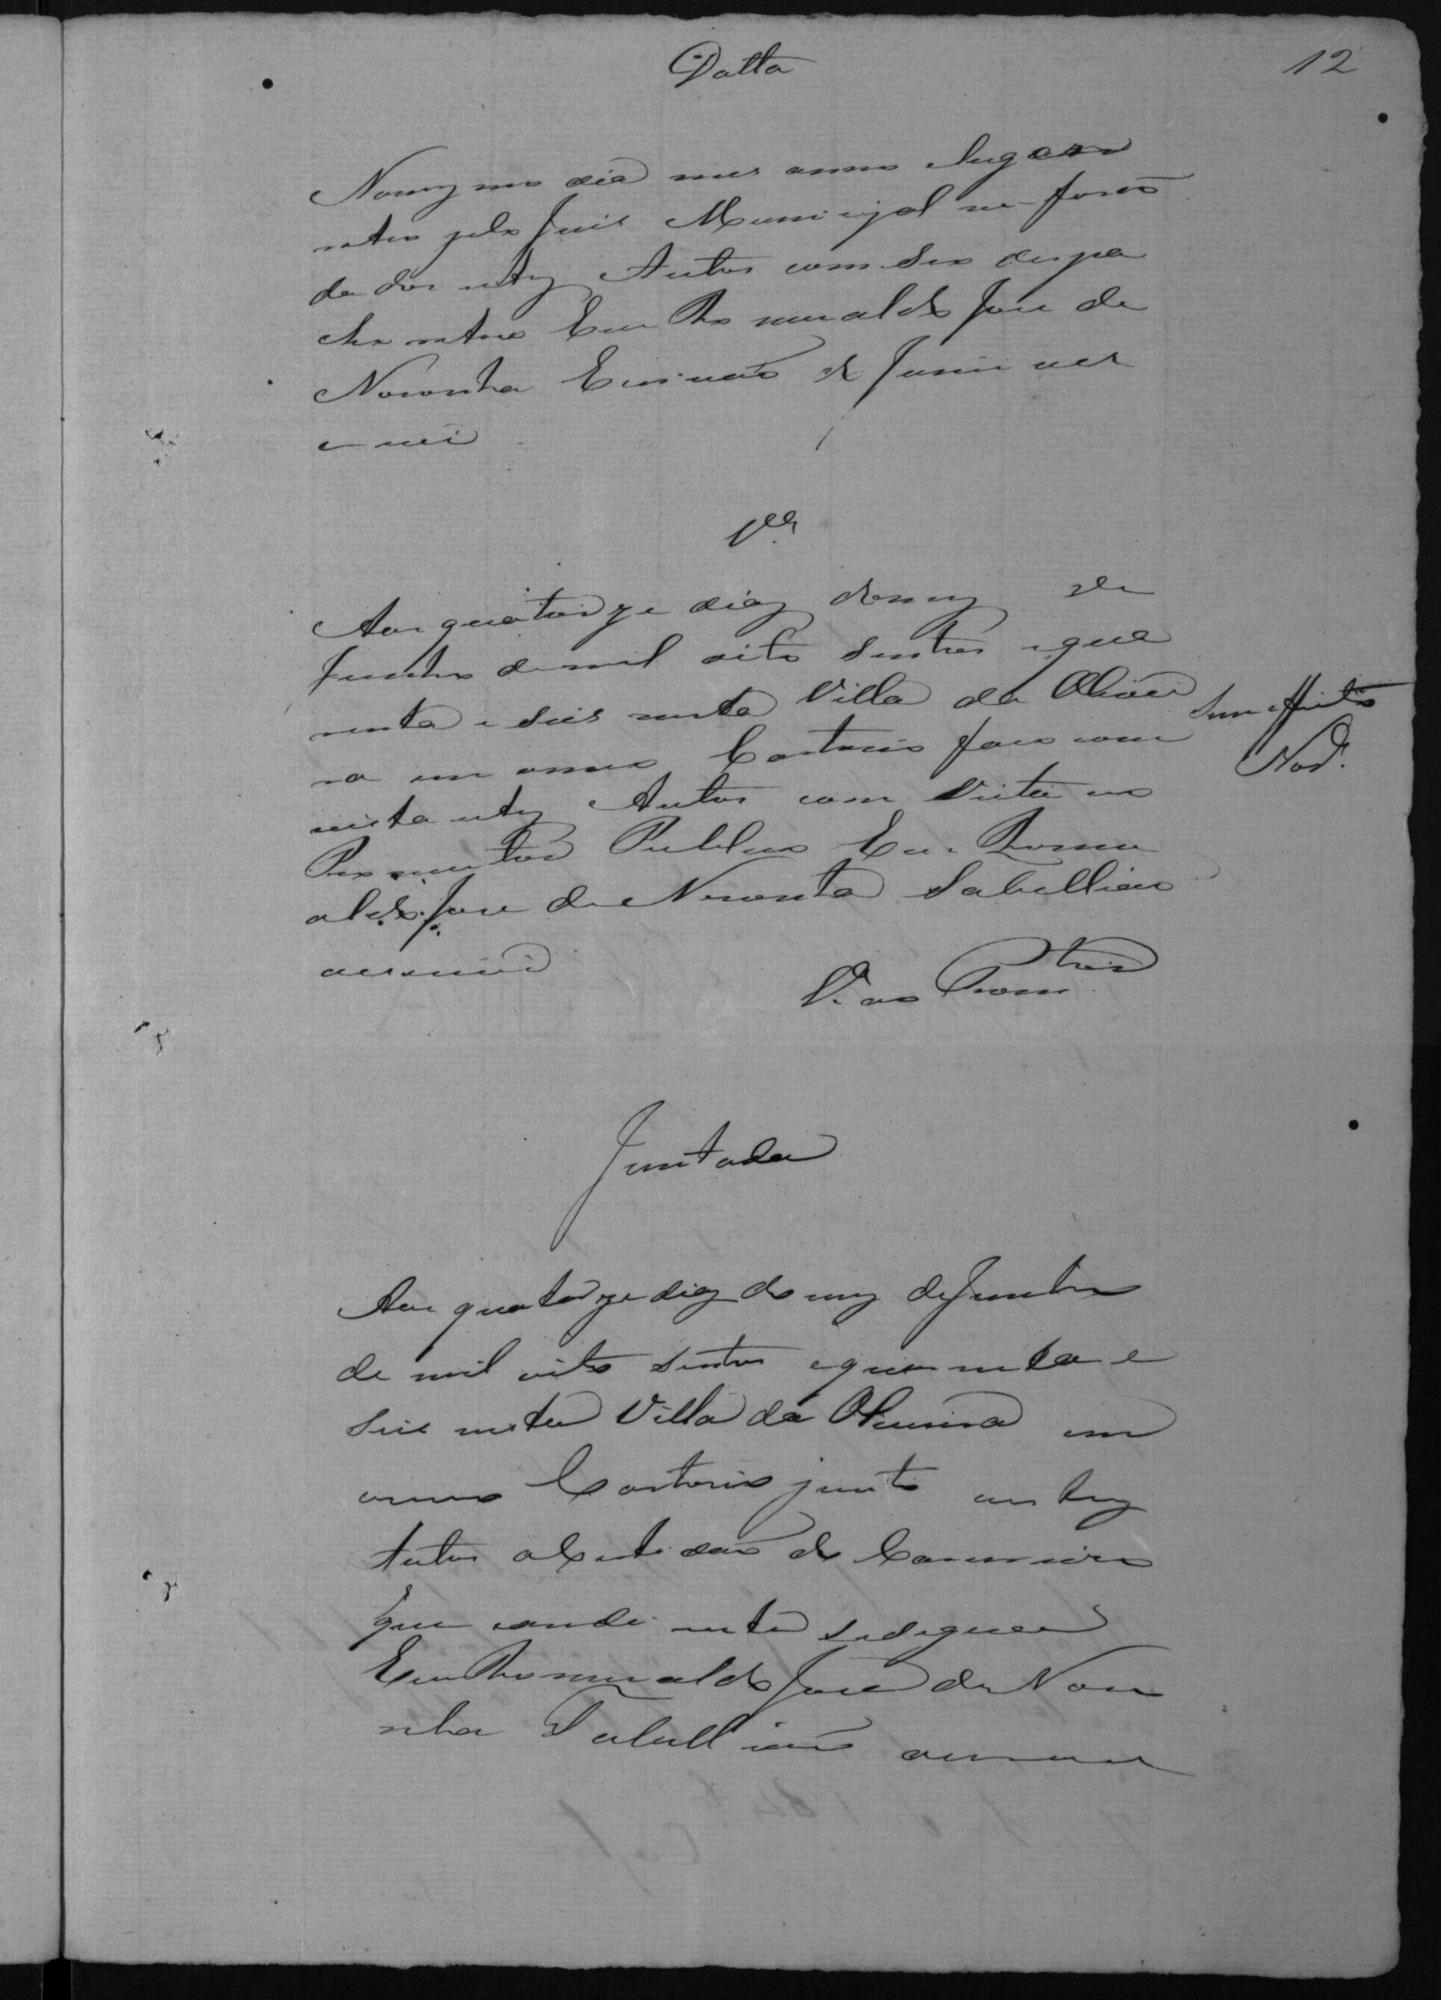 Datta
12
Nomeymo dia mes anno elugar
retro pelo Juis Municipal me forão
dados estes Autos com seu despa
cho retro Eu Romualdo José de
Noronha Escrivão
e vi
Vta
Aos quatorze dias do mez de
Junho de mil oito sentos equa
renta e seis nesta Villa da Olivei
ra em omeu Cartorio faço com
vista estes Autos com vista ao
Promotor Publico Eu Romu
aldo José de Noronha Tabellião
oescrevi
Sem effeito
Nor.ª
V. ao Prom.tor
Juntada
Aos quatorze dias do mez de Junho
de mil oito sentos equarenta e
seis nesta Villa da Oliveira em
omeu Cartorio junto aestes
Autos a Certidão do
que ao diante sesegue
Eu Romualdo José de Noro
nha Tabellião